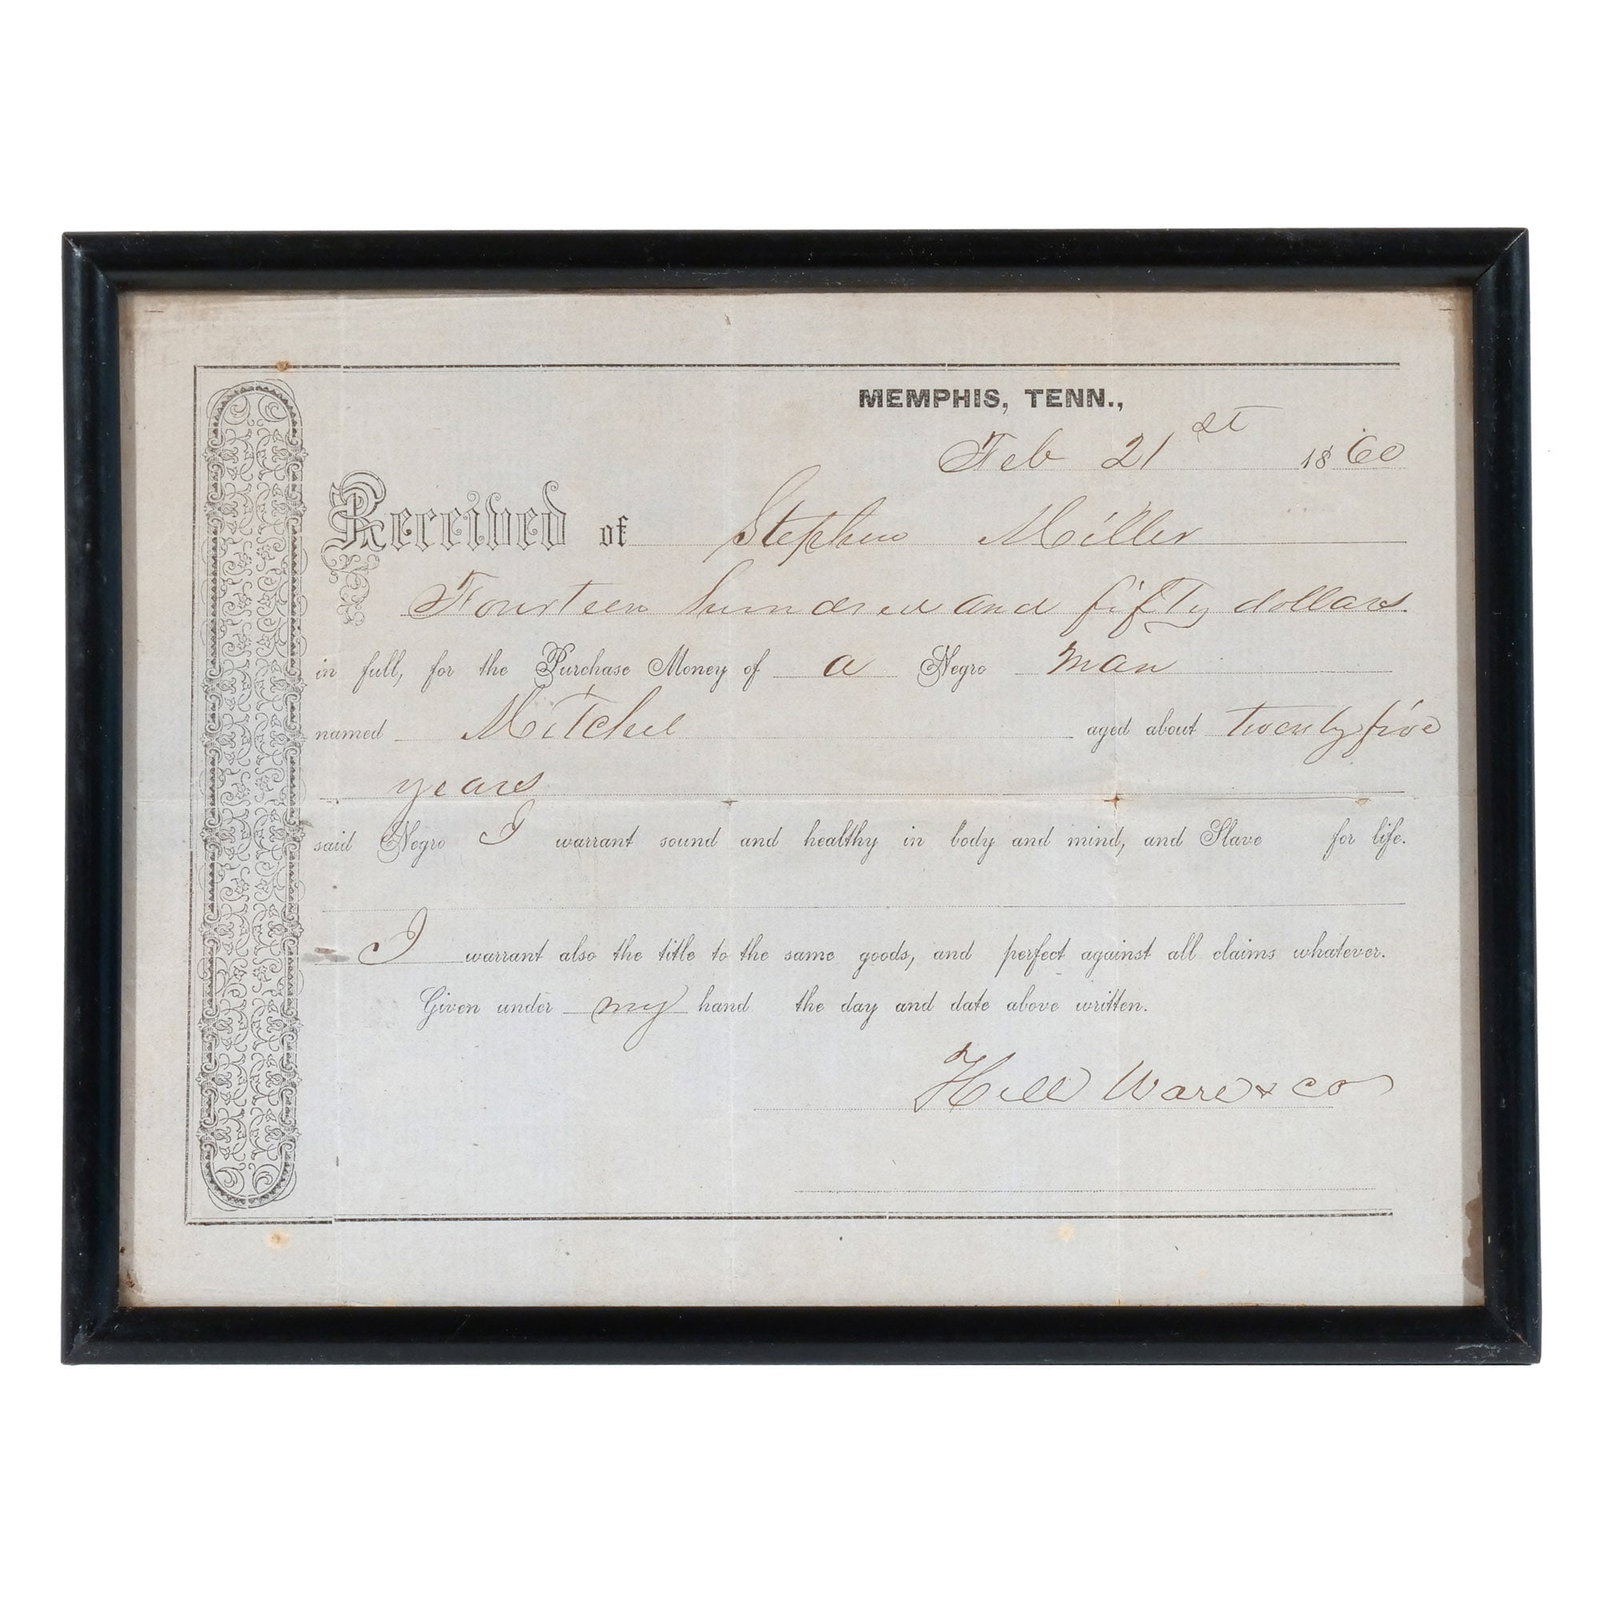 MEMPHIS, TENN.,
Feb 21st 1860
Received of Stephen Miller
Fourteen hundred and fifty dollars
in full, for the Purchase Money of a Negro man
named Mitchel aged about twenty five
years
said Negro I warrant sound and healthy in body and mind, and Slave for life.
I warrant also the title to the same goods, and perfect against all claims whatever.
Given under my hand the day and date above written.
Hill Ware & co